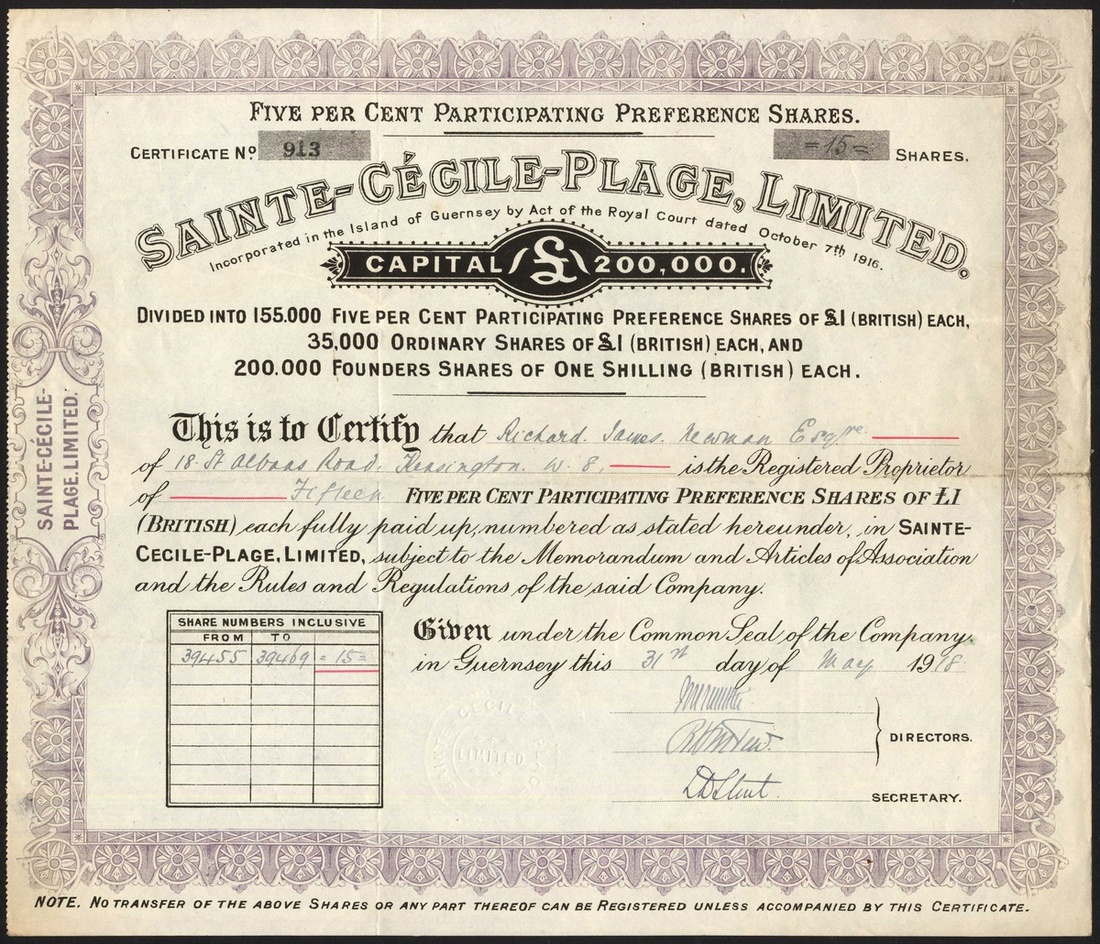 FIVE PER CENT PARTICIPATING PREFERENCE SHARES.
CERTIFICATE No. 913 =15= SHARES.
SAINTE-CÉCILE-PLAGE, LIMITED.
Incorporated in the Island of Guernsey by Act of the Royal Court dated October 7th 1916.
CAPITAL £ 200,000.
DIVIDED INTO 155.000 FIVE PER CENT PARTICIPATING PREFERENCE SHARES OF £1 (BRITISH) EACH,
35,000 ORDINARY SHARES OF £1 (BRITISH) EACH, AND
200.000 FOUNDERS SHARES OF ONE SHILLING (BRITISH) EACH.
This is to Certify that Richard James Newman Esqre.
of 18 St Albans Road, Kensington. W. 8, is the Registered Proprietor
of Fifteen FIVE PER CENT PARTICIPATING PREFERENCE SHARES OF £1
(BRITISH) each fully paid up, numbered as stated hereunder, in SAINTE-
CECILE-PLAGE, LIMITED, subject to the Memorandum and Articles of Association
and the Rules and Regulations of the said Company.
SHARE NUMBERS INCLUSIVE
FROM TO
39455 39469 =15=
Given under the Common Seal of the Company.
in Guernsey this 31st day of May 1918
DIRECTORS.
SECRETARY.
LIMITED
SAINTE-CÉCILE-
PLAGE, LIMITED.
NOTE. NO TRANSFER OF THE ABOVE SHARES OR ANY PART THEREOF CAN BE REGISTERED UNLESS ACCOMPANIED BY THIS CERTIFICATE.